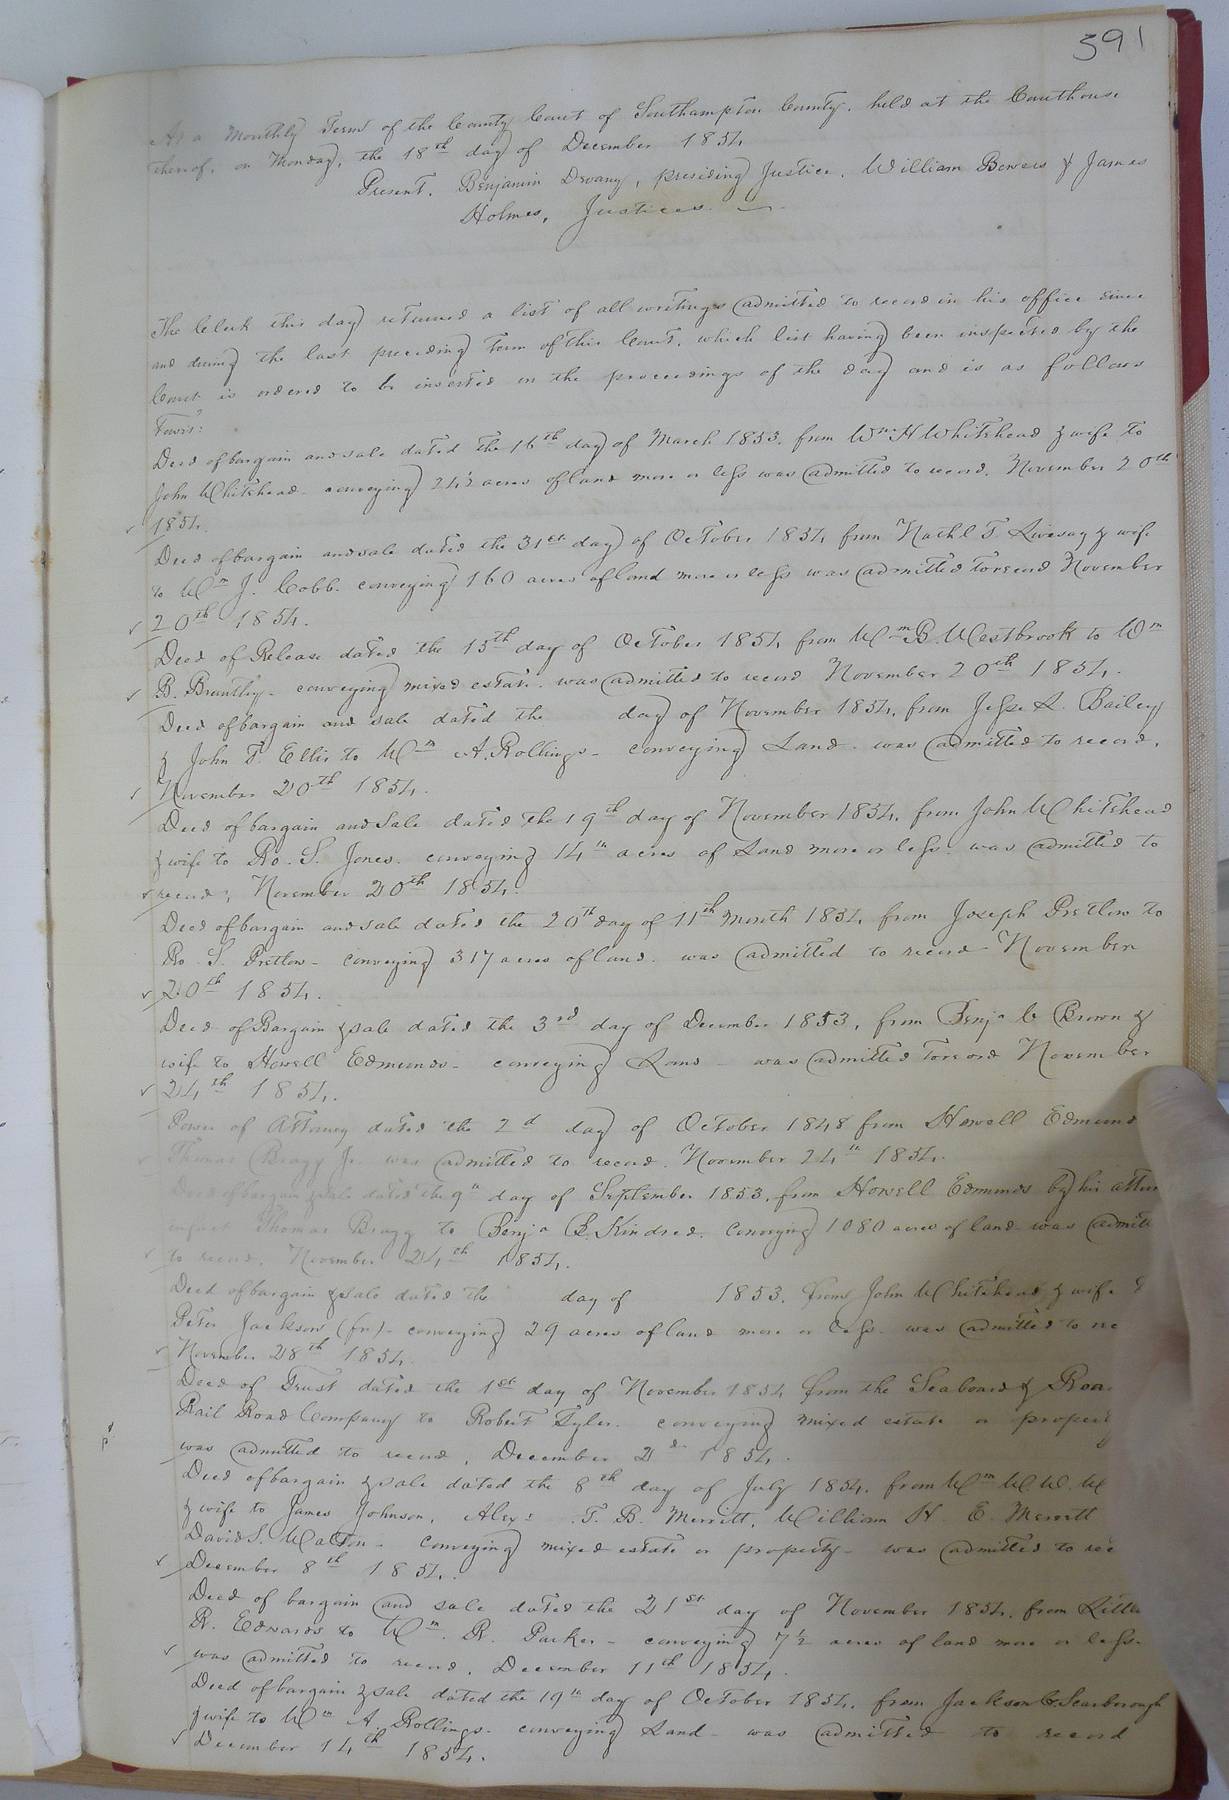 391
At a Monthly Term of the County Court of Southampton County, held at the Courthouse
thereof, on Monday, the 18th day of December 1854
Present, Benjamin Devany, presiding Justice, William Bowers & James
Holmes, Justices.
The Clerk this day returned a list of all writings admitted to record in his office since
and during the last preceding Term of this Court, which list having been inspected by the
Court is ordered to be inserted in the proceedings of the day and is as follows
Towit:
Deed of bargain and sale dated the 16th day of March 1853, from Wm H Whitehead & wife to
John Whitehead - conveying acres of land more or less was admitted to record, November 20th
1854.
Deed of bargain and sale dated the 31st day of October 1854, from Nathl T. Livesay & wife
to Wm J. Cobb. conveying 160 acres of land more or less was admitted to record November
20th 1854.
Deed of Release dated the 15th day of October 1854 from Wm B. Westbrook to Wm
B. Brantley - conveying mixed estate. was admitted to record November 20th 1854.
Deed of bargain and sale dated the day of November 1854, from Jesse L. Bailey
& John T. Ellis to Wm A. Rollings - conveying Land. was admitted to record,
November 20th 1854.
Deed of bargain and Sale dated the 19th day of November 1854, from John Whitehead
& wife to Ro. S. Jones. conveying 14 acres of Land more or less. was admitted to
record, November 20th 1854.
Deed of bargain and sale dated the 20th day of 11th month 1854 from Joseph Pretlow to
Ro. S. Pretlow - conveying 317 acres of land. was admitted to record November
20th 1854.
Deed of Bargain & sale dated the 3rd day of December 1853, from Benja C Brown &
wife to Howell Edmunds - conveying Land - was admitted to record November
24th 1854.
Power of Attorney dated the 2d day of October 1848 from Howell Edmund
Thomas Bragg Jr. was admitted to record. November 24th 1854.
Deed of bargain & sale dated the 9th day of September 1853, from Howell Edmunds by his attor
infact Thomas Bragg to Benja B. Kindred. conveying 1080 acres of land was admitt
to record, November 24th 1854.
Deed of bargain & sale dated the day of 1853. from John Whitehead & wife
Peter Jackson (fn) - conveying 29 acres of land more or less. was admitted to rec
November 28th 1854.
Deed of Trust dated the 1st day of November 1854 from the Seaboard & Roa
Rail Road Company to Robert Tyler. conveying mixed estate or propert
was admitted to record, December 2d 1854.
Deed of bargain & sale dated the 8th day of July 1854. from Wm W. W. W
& wife to James Johnson, Alexr. T. B. Merritt, William H. E. Merritt
David S. Walton - conveying mixed estate or property - was admitted to rec
December 8th 1854.
Deed of bargain and sale dated the 21st day of November 1854, from
R. Edwards to Wm. R. Parker - conveying 7½ acres of land more or less.
was admitted to record, December 11th 1854.
Deed of bargain & sale dated the 19th day of October 1854. from Jackson C. Scarborough
& wife to Wm A. Rollings. conveying Land - was admitted to record
December 14th 1854.